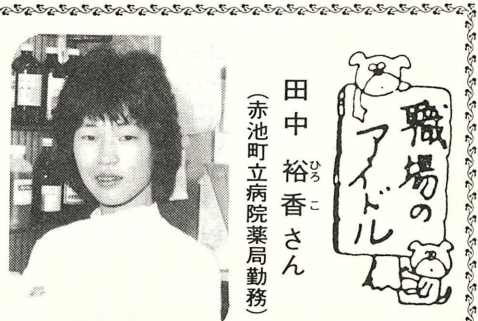 職場の
アイドル
田中 裕香さん
ひろ こ
（赤池町立病院薬局勤務）